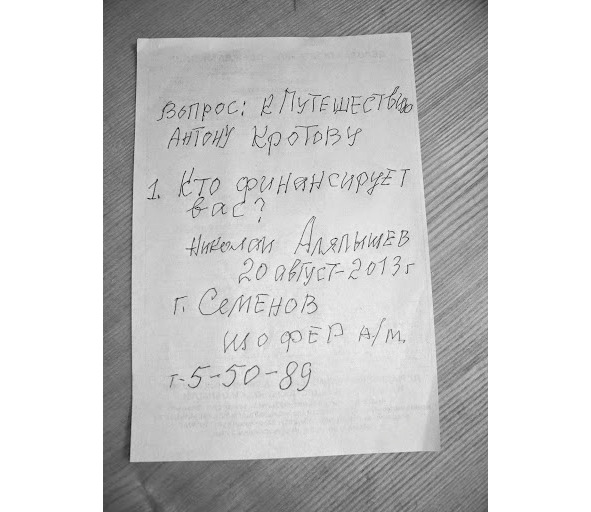 Вопрос: к Путешествию
Антону Кротову
1. Кто финансирует
вас?
Николай Аляпышев
20 август-2013г
г. Семенов
шофер а/м.
т-5-50-89